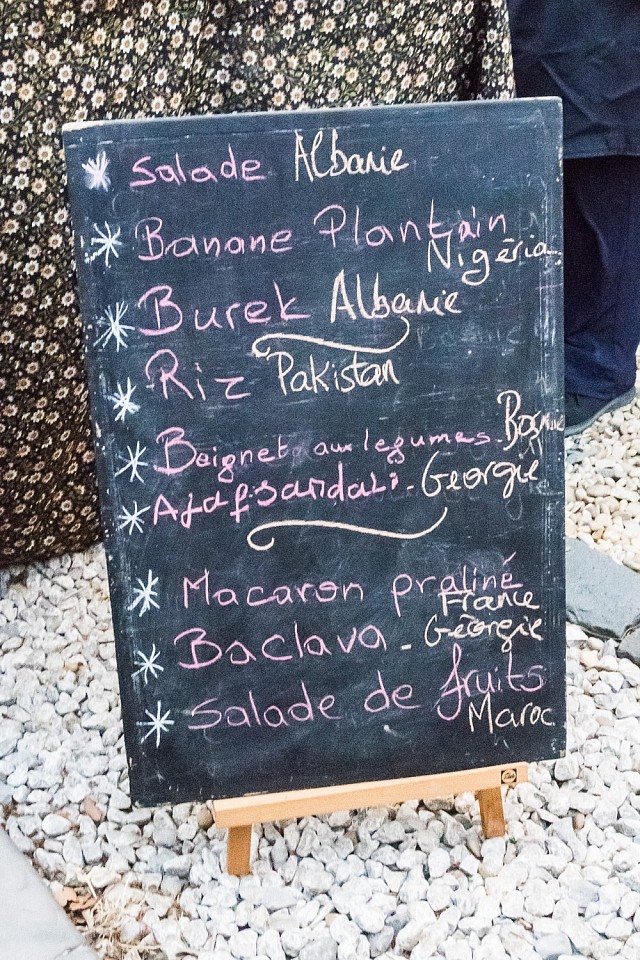 Salade Albanie
Banane Plantain
Nigéria
Burek Albanie
Riz Pakistan
Beignet aux legumes. Bosnie
Ajafsandali - Georgie
Macaron praliné
France
Baclava - Géorgie
Salade de fruits
Maroc